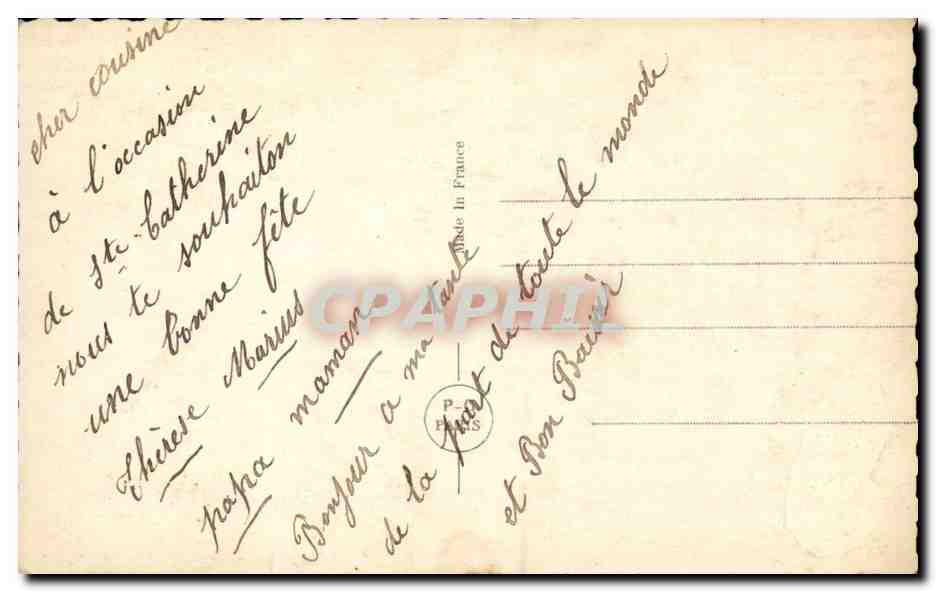 cher cousine
à l'occasion
de Ste Catherine
nous te souhaiton
une bonne fête
Thérèse Marius
papa maman
Bonjour a ma tante
de la part de toute le monde
et Bon Baisir
Made In France
CPAPHIL
PARIS